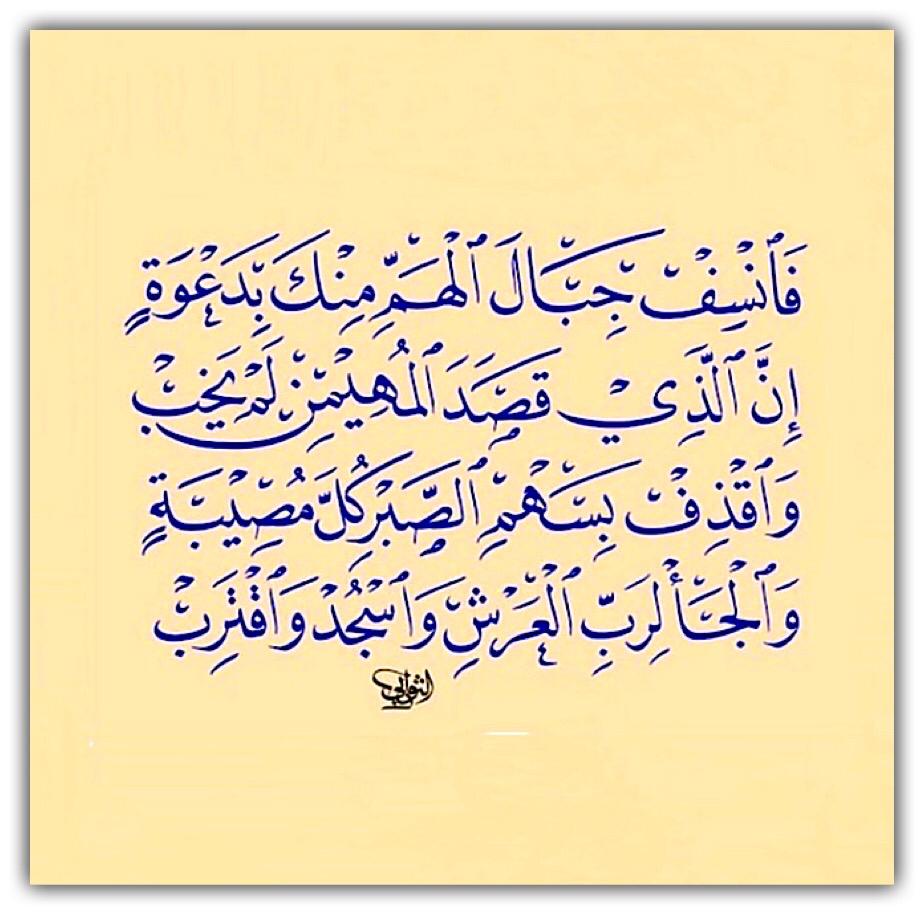 فَٱنْسِفْ جِبَالَ ٱلْهَمِّ مِنْكَ بِدَعْوَةٍ
إِنَّ ٱلَّذِي قَصَدَ ٱلْمُهَيْمِنَ لَمْ يَخِبْ
وَٱقْذِفْ بِسَهْمِ ٱلصَّبْرِ كُلَّ مُصِيْبَةٍ
وَٱلْجَأْ لِرَبِّ ٱلْعَرْشِ وَٱسْجُدْ وَٱقْتَرِبْ